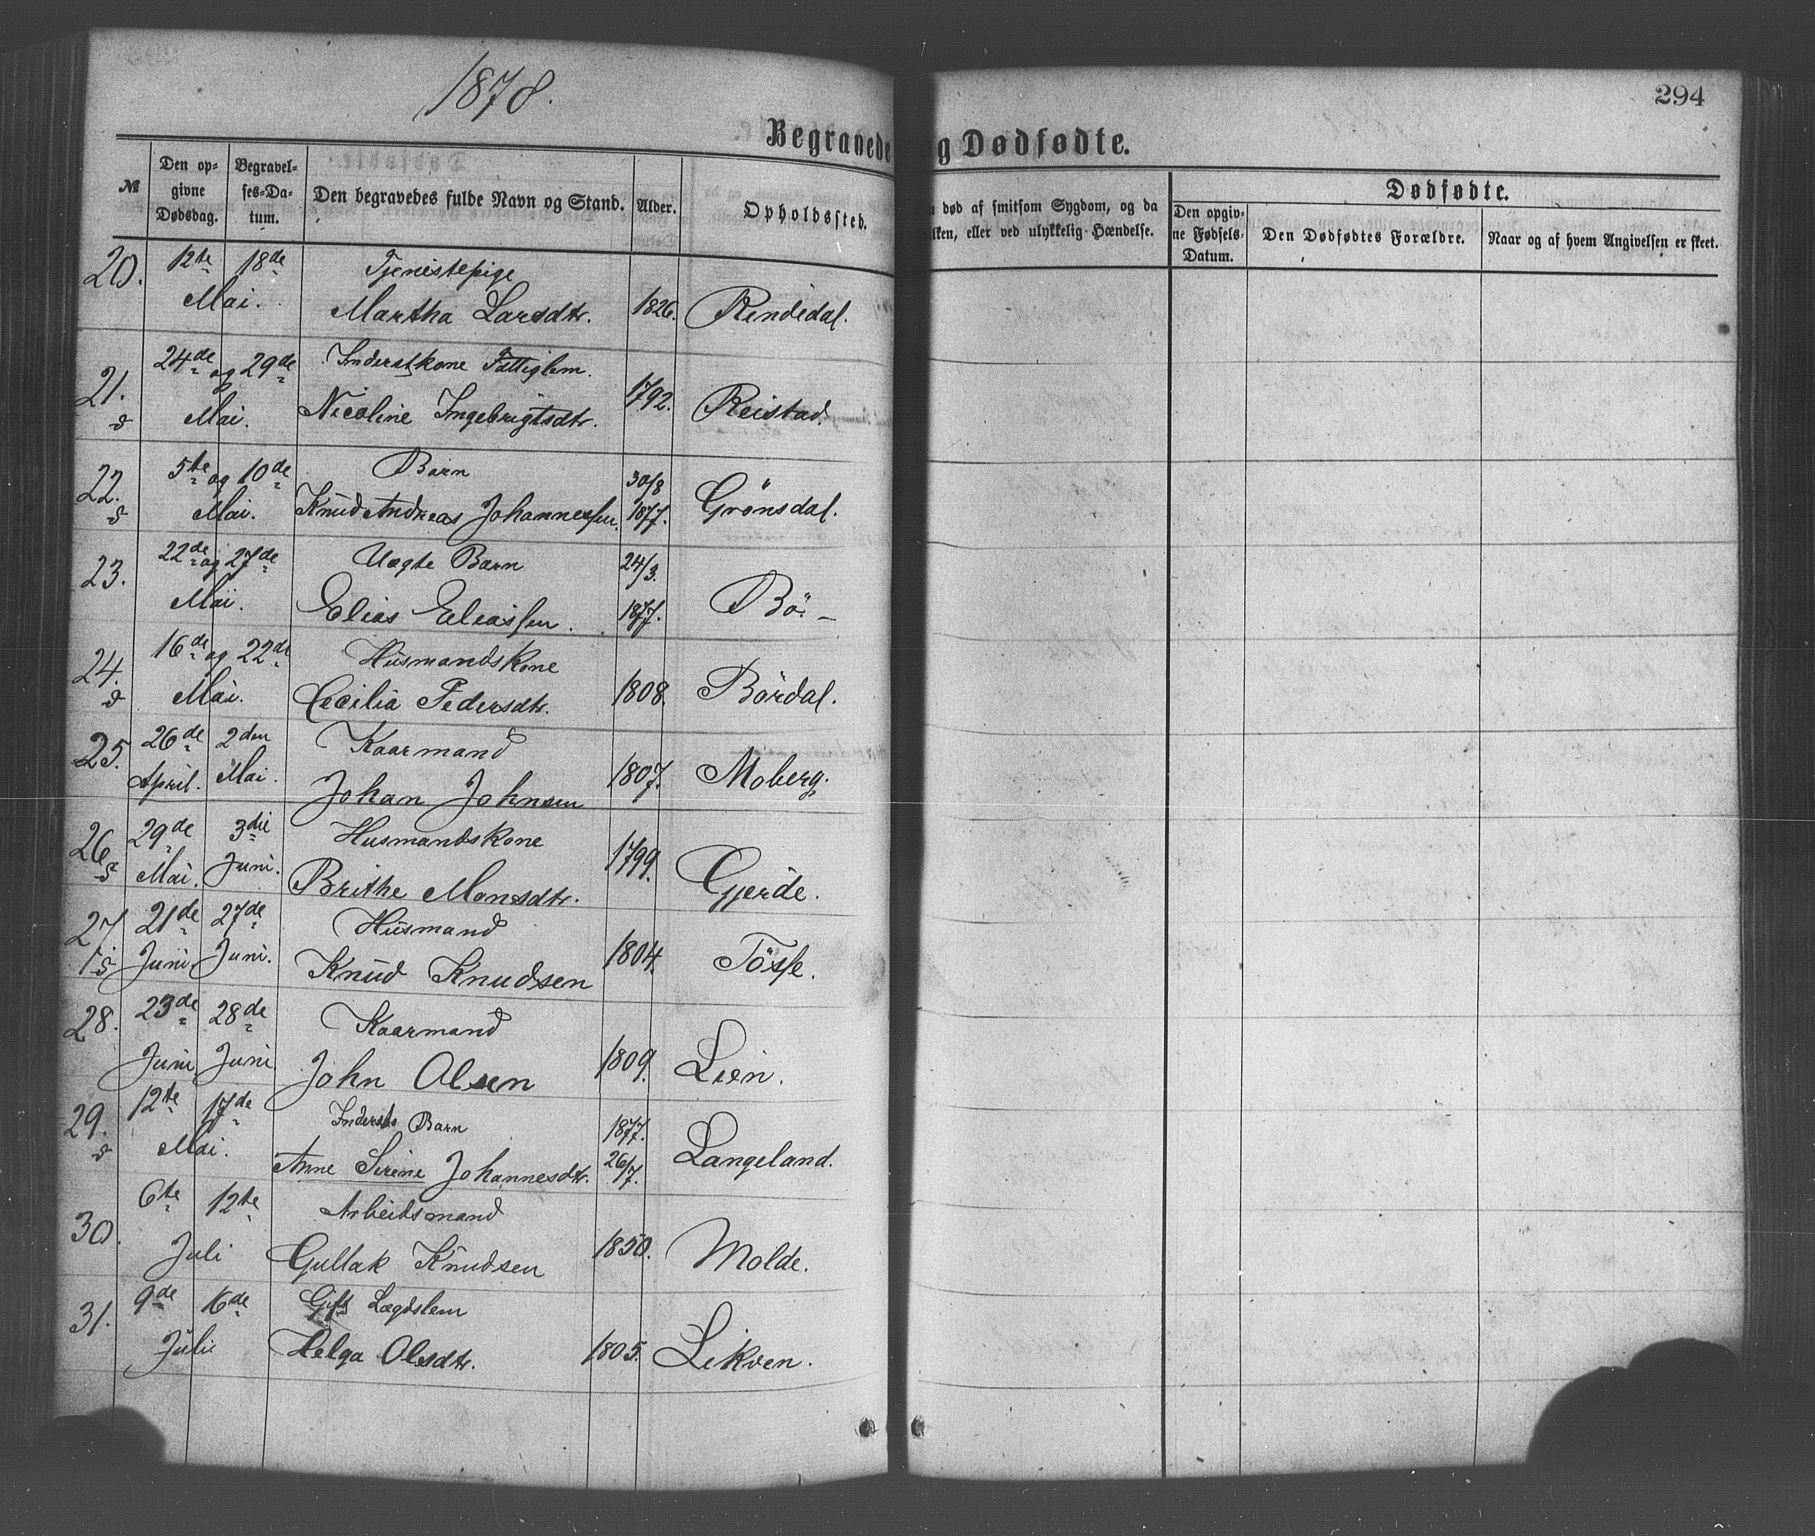 1878.
294
Begravede og Dødfødte.
№
Den op-
givne
Dødsdag.
Begravel-
ses-Da-
tum.
Den begravedes fulde Navn og Stand.
Alder.
Opholdssted.
død af smitsom Sygdom, og da
lken, eller ved ulykkelig Hændelse.
Dødfødte.
Den opgiv-
ne Fødsels-
Datum.
Den Dødfødtes Forældre.
Naar og af hvem Angivelsen er skeet.
20. 12te 18de Tjenestepige
Mai. Martha Larsdtr. 1826. Rendedal.
21. 24de og 29de Inderstkone Fattiglem.
Mai. Nicoline Ingebrigtsdtr. 1792. Reistad.
22. 5te og 10de Barn 30/8
Mai. Knud Andreas Johannessen. 1877. Grønsdal.
23. 22de og 27de Uægte Barn 24/3.
Mai. Elias Eliassen. 1877. Bö. -
24. 16de og 22de Husmandskone
Mai. Cecilia Pedersdtr. 1808. Bördal.
25. 26de 2den Kaarmand
April. Mai. Johan Johnsen 1807. Moberg.
26 29de 3die Husmandskone
Mai. Juni. Brithe Monsdtr. 1799. Gjerde.
27 21de 27de Husmand
Juni. Juni. Knud Knudsen 1804. Tösse.
28. 23de 28de Kaarmand
Juni Juni John Olsen 1809. Lien.
29. 12te 17de Inderst Barn 1877.
Mai. Anne Serine Johannesdtr. 26/7. Langeland.
30. 6te 12te Arbeidsmand
Juli Gullak Knudsen 1850. Molde.
31. 9de 16de Gift Lægdslem
Juli Helga Olsdtr. 1805. Lekven.